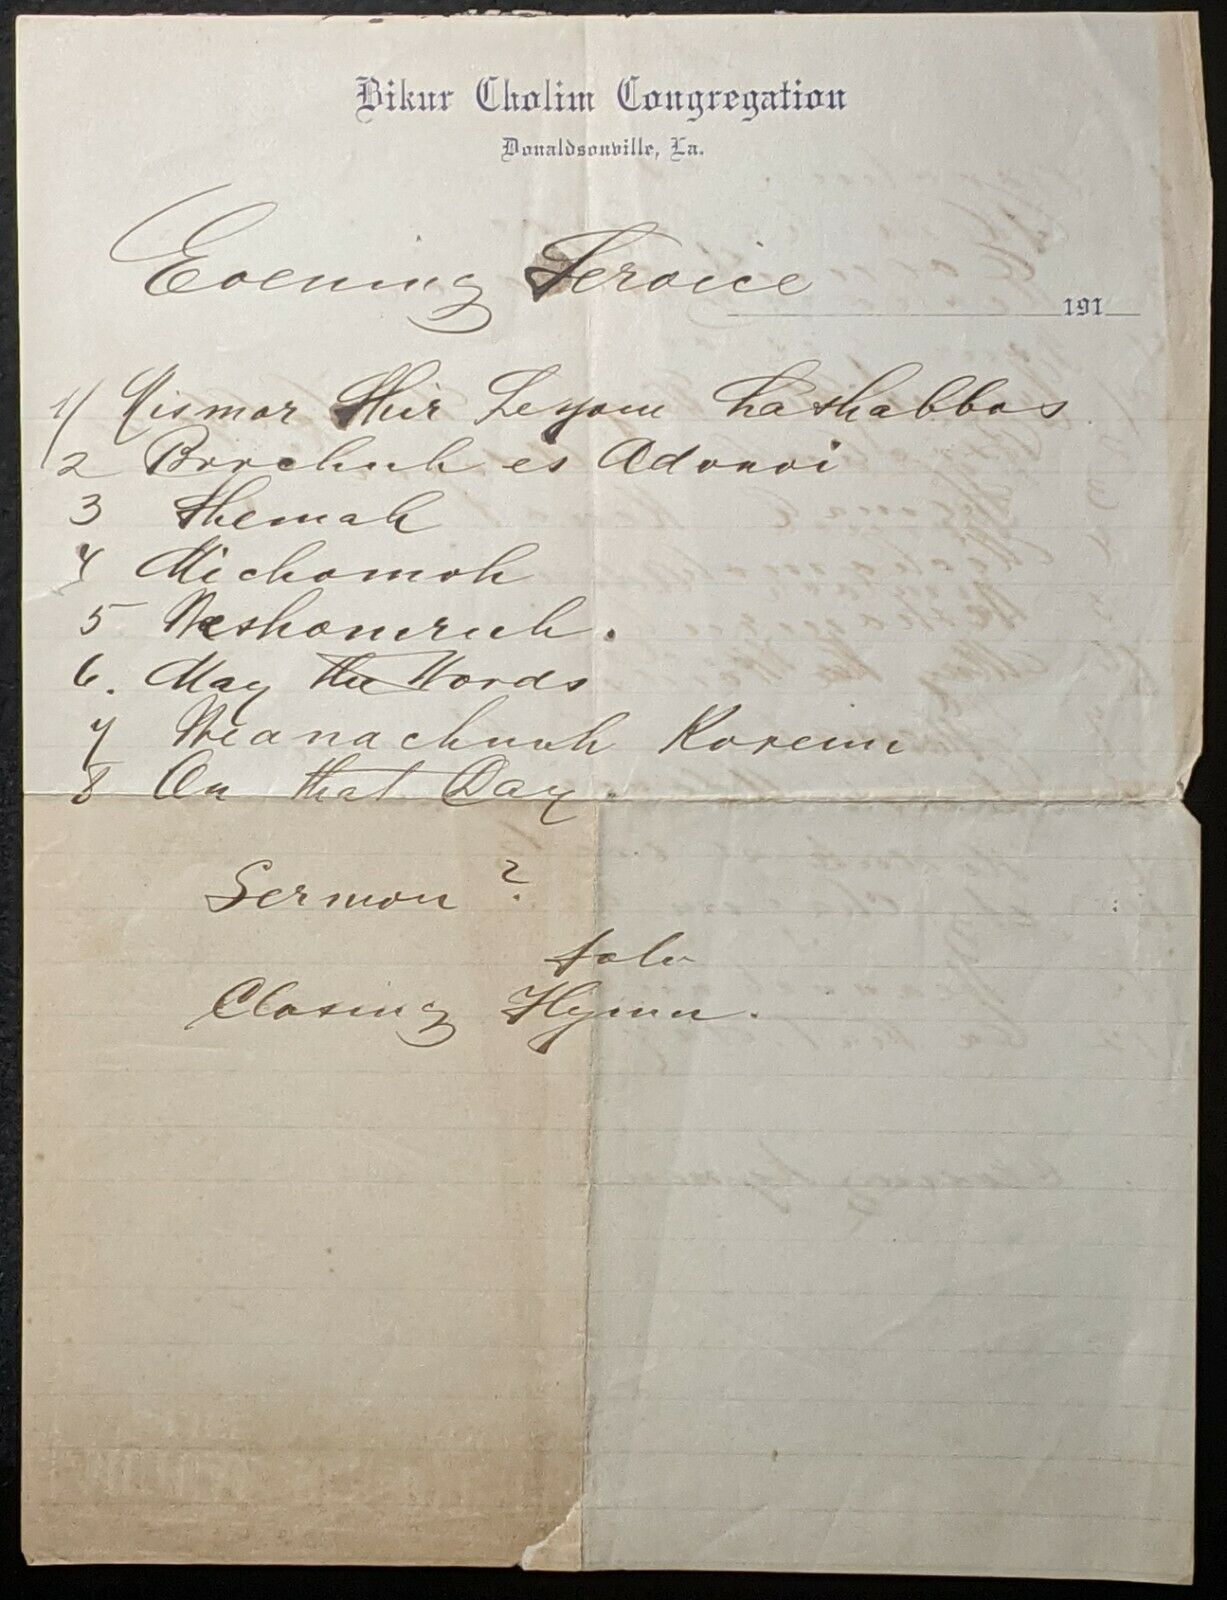 Bikur Cholim Congregation
Donaldsonville, La.
Evening Service
191
1/ Mismor Shir Leyom Hashabbos
2 Borchuh es Adonoi
3 Shemah
4 Michomoh
5 Weshomruh.
6. May the Words
7 Weanachnuh Koreim
8 On that Day.
Sermon ?
Solo
Closing Hymn.